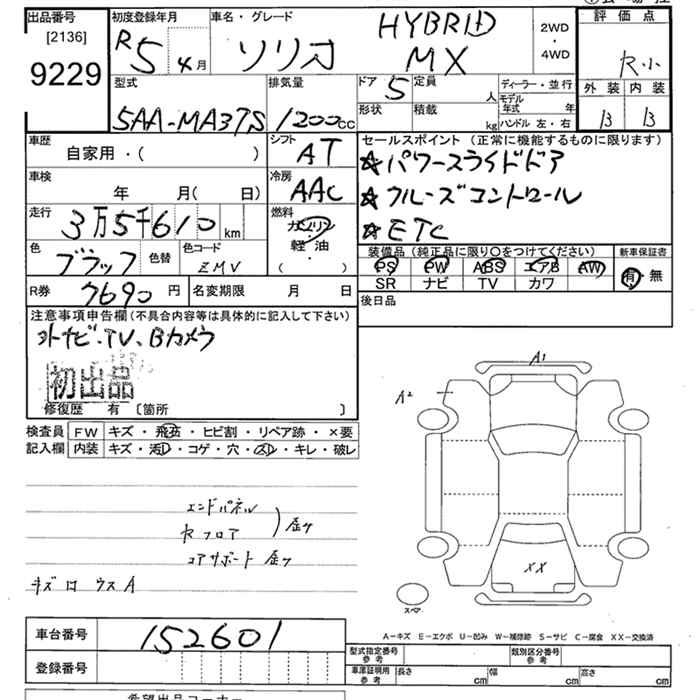 出品番号 初度登録年月 車名・グレード 評価点
[2136] R5 4月 ソリオ HYBRID MX 2WD・4WD R小
9229
型式 排気量 ドア 5 定員 人 ディーラー・並行 外装 内装
5AA-MA37S 1200cc 形状 積載 kg モデル年式 年 ハンドル 左・右 B B
車歴 シフト セールスポイント (正常に機能するものに限ります)
自家用・( ) AT ☆パワースライドドア
車検 冷房 ☆クルーズコントロール
年 月( 日) AAC ☆ETC
走行 燃料
3万5千610km ガソリン・軽油・( )
装備品(純正品に限り○をつけてください) 新車保証書
色 色替 色コード PS PW ABS エアB AW 有・無
ブラック ZMV SR ナビ TV カワ
R券 7690円 名変期限 月 日 後日品
注意事項申告欄(不具合内容等は具体的に記入して下さい)
外ナビ・TV、Bカメラ
初出品
修復歴 有 [箇所 ]
A1
A2
検査員 FW キズ・飛石・ヒビ割・リペア跡・×要
記入欄 内装 キズ・汚レ・コゲ・穴・スレ・キレ・破レ
エンドパネル
Rフロア 歪み
コアサポート 歪み
キズ ロ ウスA
XX
スペア
A-キズ E-エクボ U-凹み W-補修跡 S-サビ C-腐食 XX-交換済
車台番号 152601
型式指定番号 参考 類別区分番号 参考
登録番号 車庫証明用 参考 長さ cm 幅 cm 高さ cm
希望出品コーナー